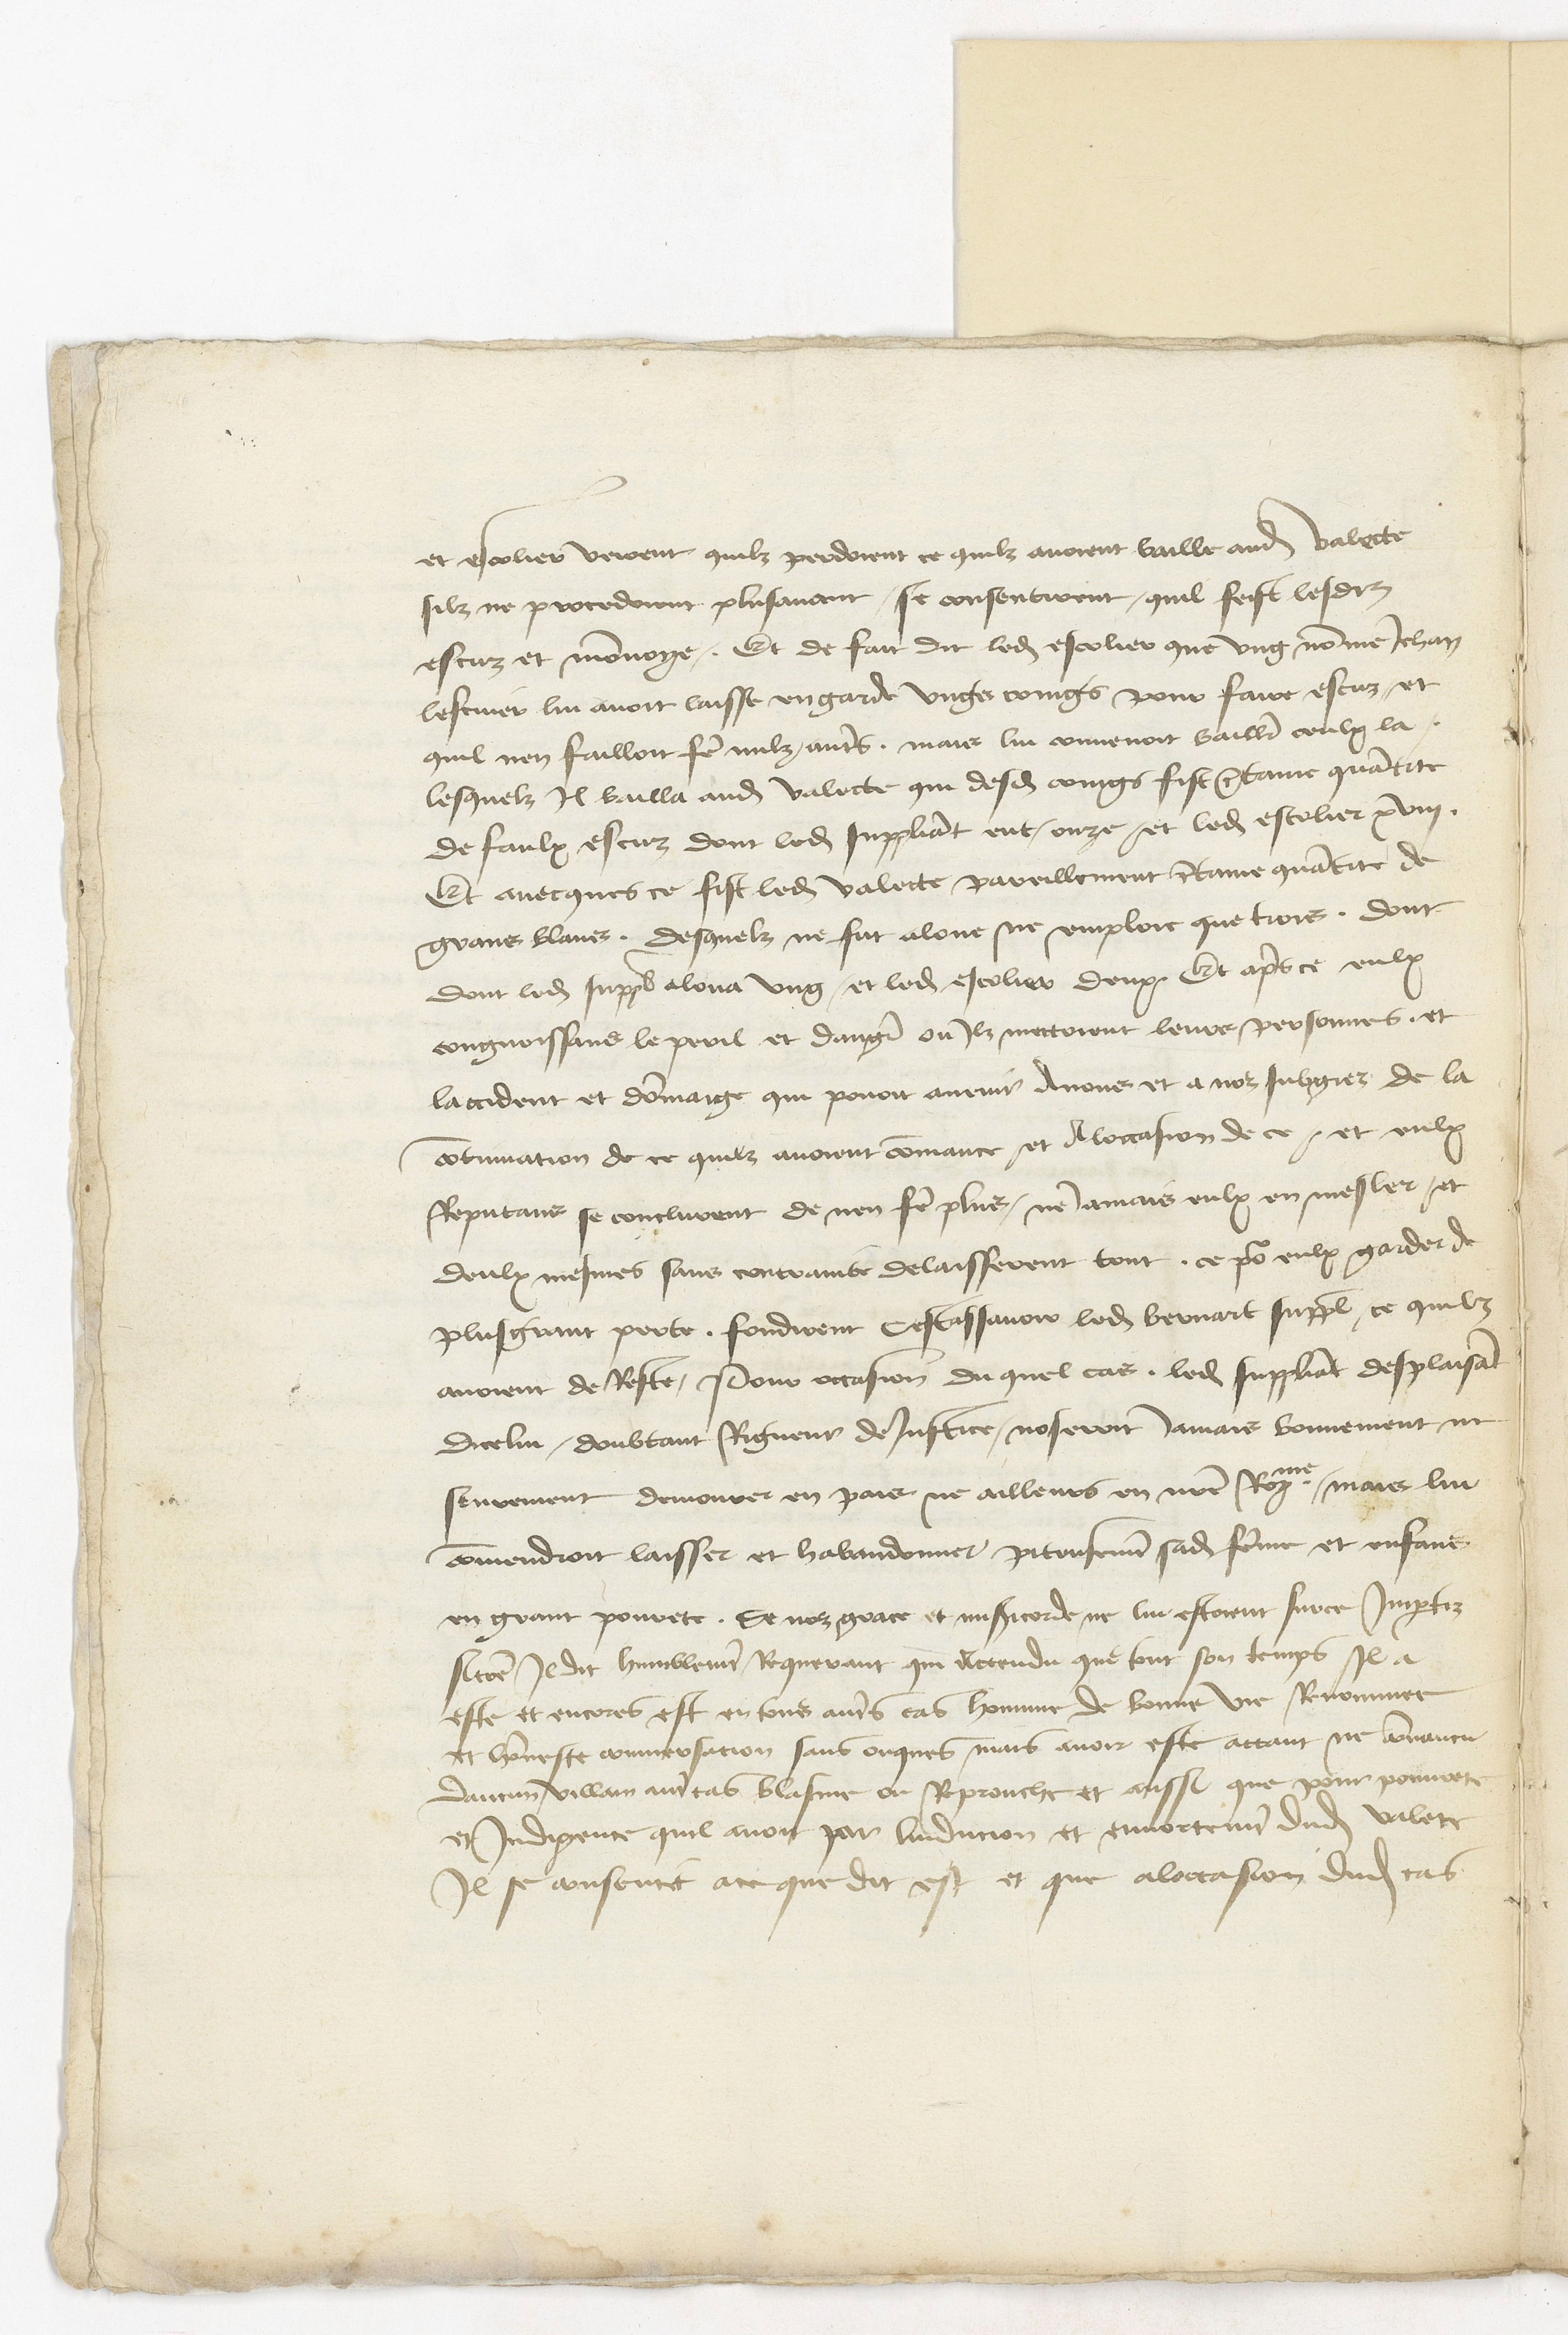 et escolier virent quilz perdoient ce quilz avoient baille aud valecte
silz ne procedoient plusavant / se consentirent / quil feist lesdiz
escuz et mōnoye /. Et de fait dit led escolier que ung nōme Jehan
lescuier lui avoit laisse en garde ungs coings pour faire escuz / et
quil nen failloit fē nulz / autēs . mais lui convenoit baillē ceulx la /.
lesquelz Il bailla aud valecte qui desd coings fist c̄taine quātite
de faulx escuz dont led suppliāt eut / onze / et led escolier xviij .
Et avecques ce fist led valecte pareillement c̄taine quātite de
grans blans . desquelz ne fut aloue ne emploie que trois . dont
dont led suppl aloua ung / et led escolier deux / Et ap̄s ce eulx
congnoissans le peril et dangē ou Ilz mettoient leurs personnes . et
laccident et dōmaige qui povoit avenir A nous et a noz subgiez de la
cōtinuation de ce quilz avoient cōmance / et A loccasion de ce / et eulx
Reputans se conclurent de nen fē plus / ne Jamais eulx en mesler / et
deulx mesmes sans contrainte delaisserent tout . ce po eulx garder de
plusgrant perte . fondirent Cestassavoir led bernart suppl / ce quilz
avoient de Reste / Pour occasion du quel cas . led suppliāt desplaisāt
dicelui / doubtant Rigueur de Justice / noseroit Jamais bonnement ne
seurement demourer en pais ne ailleurs en nrē Roy.me / mais lui
cōviendroit laisser et habandonner piteusemēt sad fēme et enfans
en grant povrete . Se noz grace et miscorde ne lui estoient surce Imptiz
sicōe Il dit humblemēt Requerant que Actendu que tout son temps Il a
este et encores est en tous autēs cas homme de bonne vie Renommee
et hōneste conversacion sans onques mais avoir este actaint ne cōvaincu
daucun villain autē cas blasme ou Reprouche et aussi que pour povrete
et Indigence quil avoit par linducion et ennortemēt dud valete
Il se consentit ace que dit est et que aloccasion dud cas